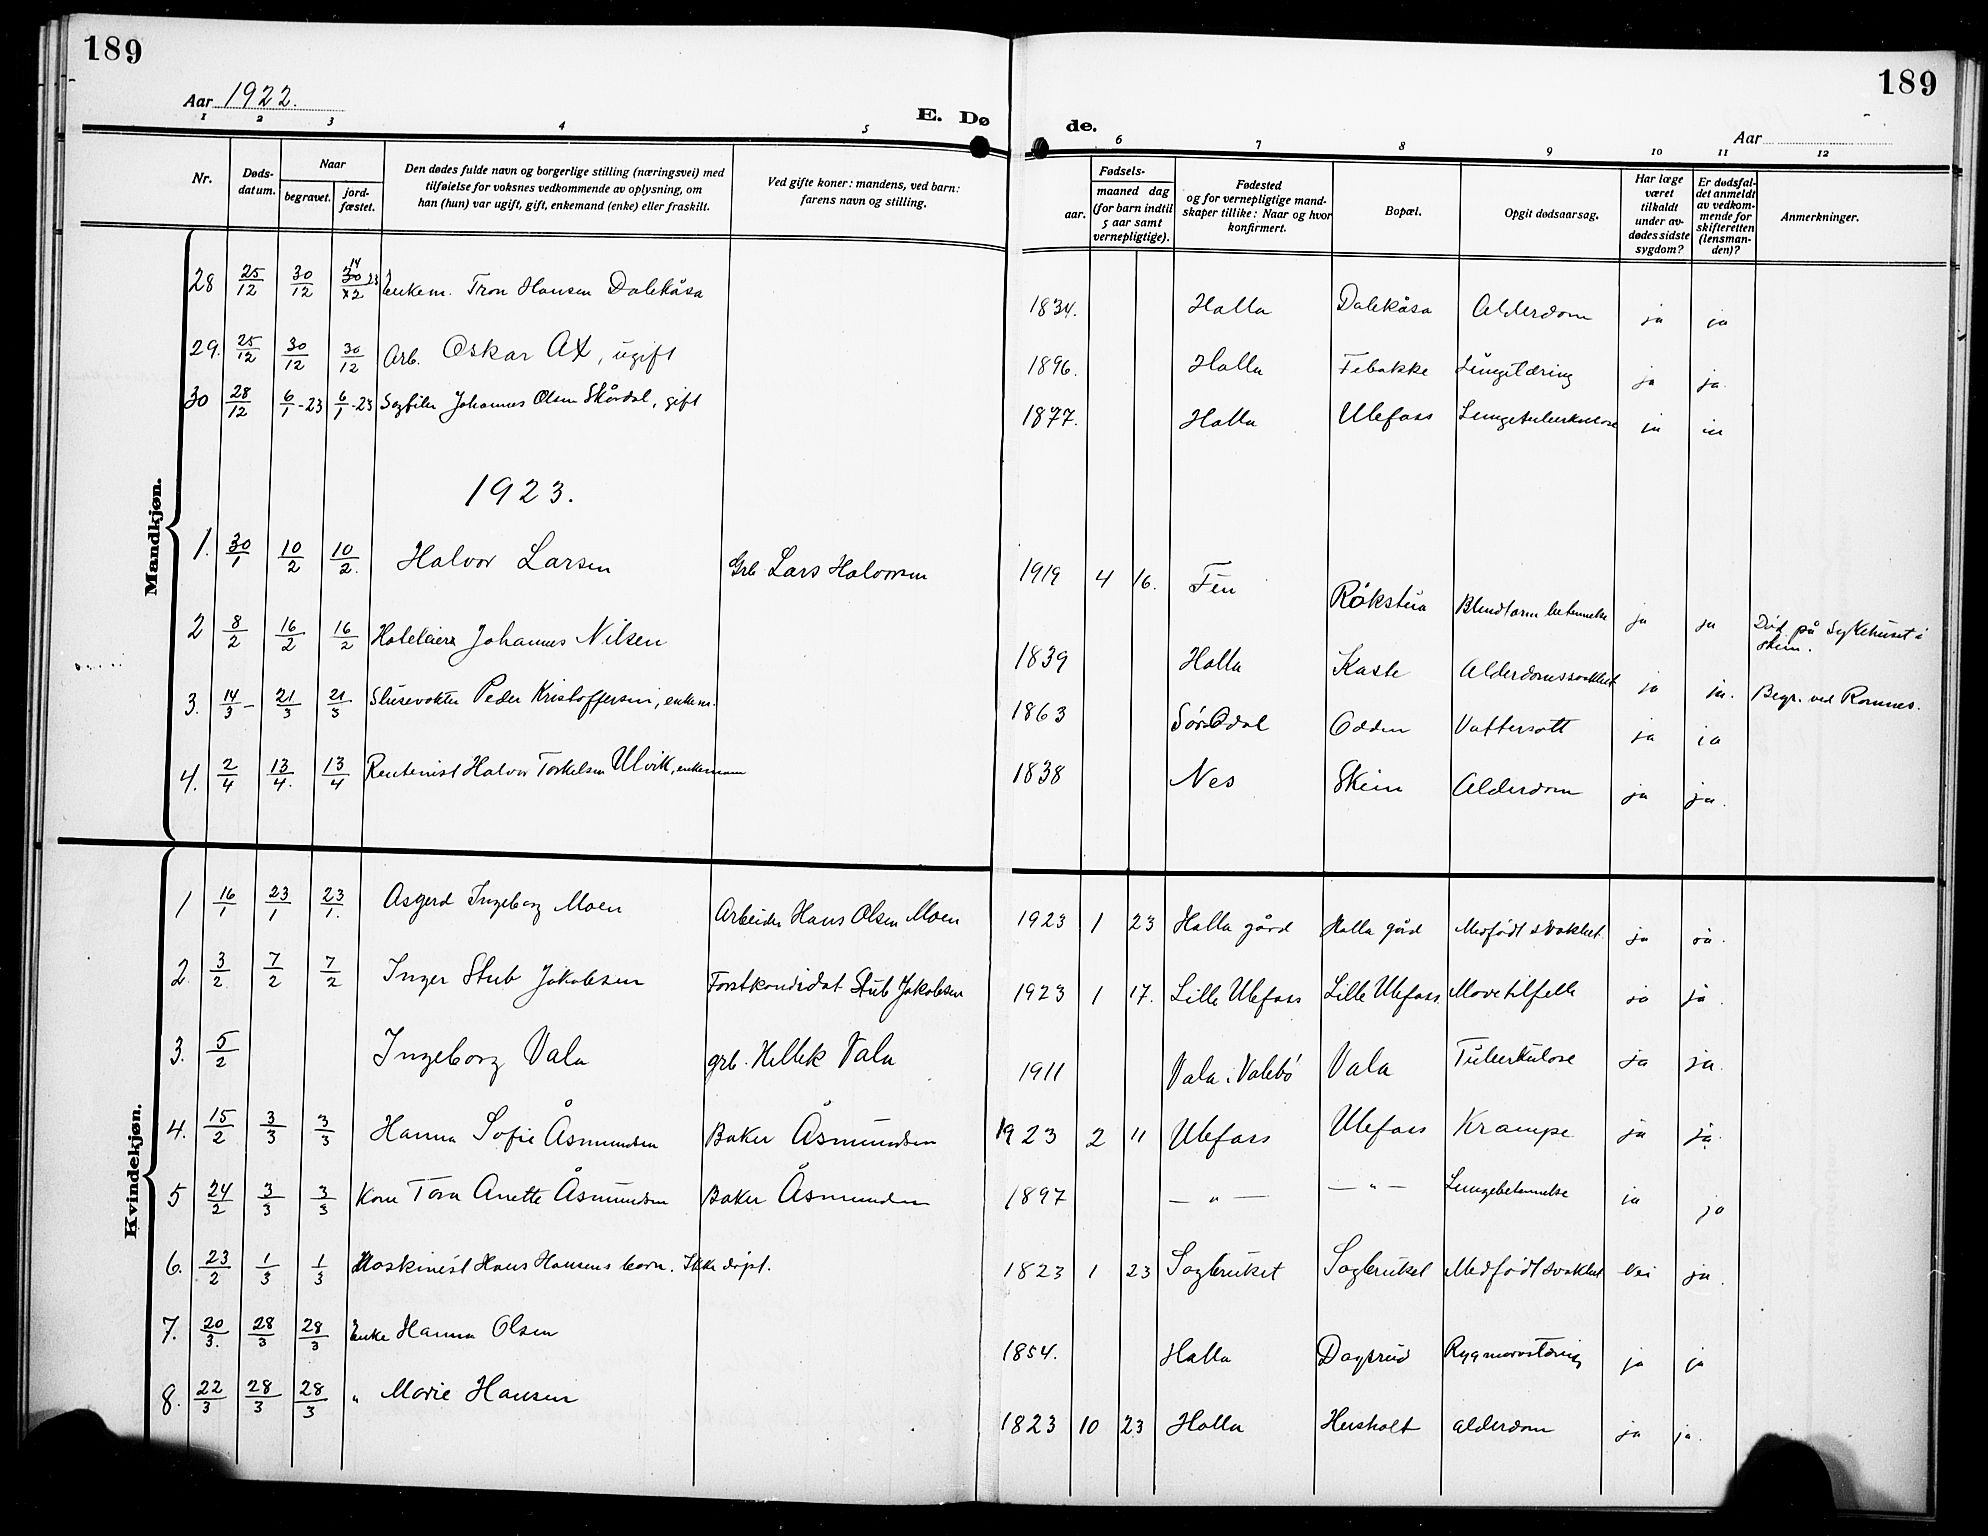 189
189
Aar 1922.
E. Dø
de.
Aar
1 2 3 4 5 6 7 8 9 10 11 12
Nr.
Døds-
datum.
Naar
begravet.
jord-
fæstet.
Den dødes fulde navn og borgerlige stilling (næringsvei) med
tilføielse for voksnes vedkommende av oplysning, om
han (hun) var ugift, gift, enkemand (enke) eller fraskilt.
Ved gifte koner: mandens, ved barn:
farens navn og stilling.
Fødsels-
aar.
maaned dag
(for barn indtil
5 aar samt
vernepligtige).
Fødested
og for vernepligtige mand-
skaper tillike: Naar og hvor
konfirmert.
Bopæl.
Opgit dødsaarsag.
Har læge
været
tilkaldt
under av-
dødes sidste
sygdom?
Er dødsfal-
det anmeldt
av vedkom-
mende for
skifteretten
(lensman-
den)?
Anmerkninger.
Mandkjøn.
28 25/12 30/12 Enkem. Tron Hansen Dalekåsa 1834. Holla Dalekåsa Alderdom ja ja
29. 25/12 30/12 30/12 Arb. Oskar Ax, ugift 1896. Holla Febakke Lungetæring ja ja.
30 28/12 6/1-23 6/1-23 Sagfiler Johannes Olsen Skårdal, gift 1877. Holla Ulefoss Lungetuberkulose ja ja
1923.
1. 30/1 10/2 10/2. Halvor Larsen Grb. Lars Halvorsen 1919 4 16. Fen Rökstua Blindtarmbetennelse ja ja Död på Sykehuset i
Skien.
2 8/2 16/2 16/2 Hoteleier Johannes Nilsen 1839 Holla Kaste Alderdomssvakhet ja ja. Begr. ved Romnes.
3. 14/3 - 21/3 21/3 Slusevokter Peder Kristoffersen, enkem. 1863 Sör Odal Odden Vattersott ja ja
4. 2/4 13/4. 13/4 Rentenist Halvor Torkelsen Ulvik, enkemann 1838 Nes Skien Alderdom ja ja.
Kvindekjøn.
1 16/1 23/1 23/1. Asgerd Ingeborg Moen Arbeider Hans Olsen Moen 1923 1 23 Holla gård Holla gård Medfödt svakhet. ja ja.
2 3/2 7/2 7/2 Inger Stub Jakobsen Forstkandidat Stub Jakobsen 1923 1 17. Lille Ulefoss Lille Ulefoss. Mavetilfelle ja ja.
3. 5/2 Ingeborg Vala grb. Hellek Vala 1911 Vala i Valebö Vala Tuberkulose ja ja.
4. 15/2 3/3 3/3 Hanna Sofie Åsmundsen Baker Åsmundsen 1923 2 11 Ulefoss Ulefoss Krampe ja ja.
5 24/2 3/3 3/3 Kone Tora Anette Åsmundsen Baker Åsmundsen 1897 — " — — " — Lungebetennelse ja ja
6. 23/2 1/3 1/3 Maskinist Hans Hansens barn. Ikke döpt. 1823 1 23 Sagbruket Sagbruket Medfödt svakhet Nei ja.
7. 20/3. 28/3 28/3 Enke Hanna Olsen 1854. Holla Dagsrud Rygmarvstæring ja ja
8. 22/3 28/3 28/3 " Marie Hansen 1823 10 23 Holla Heisholt alderdom ja ja.